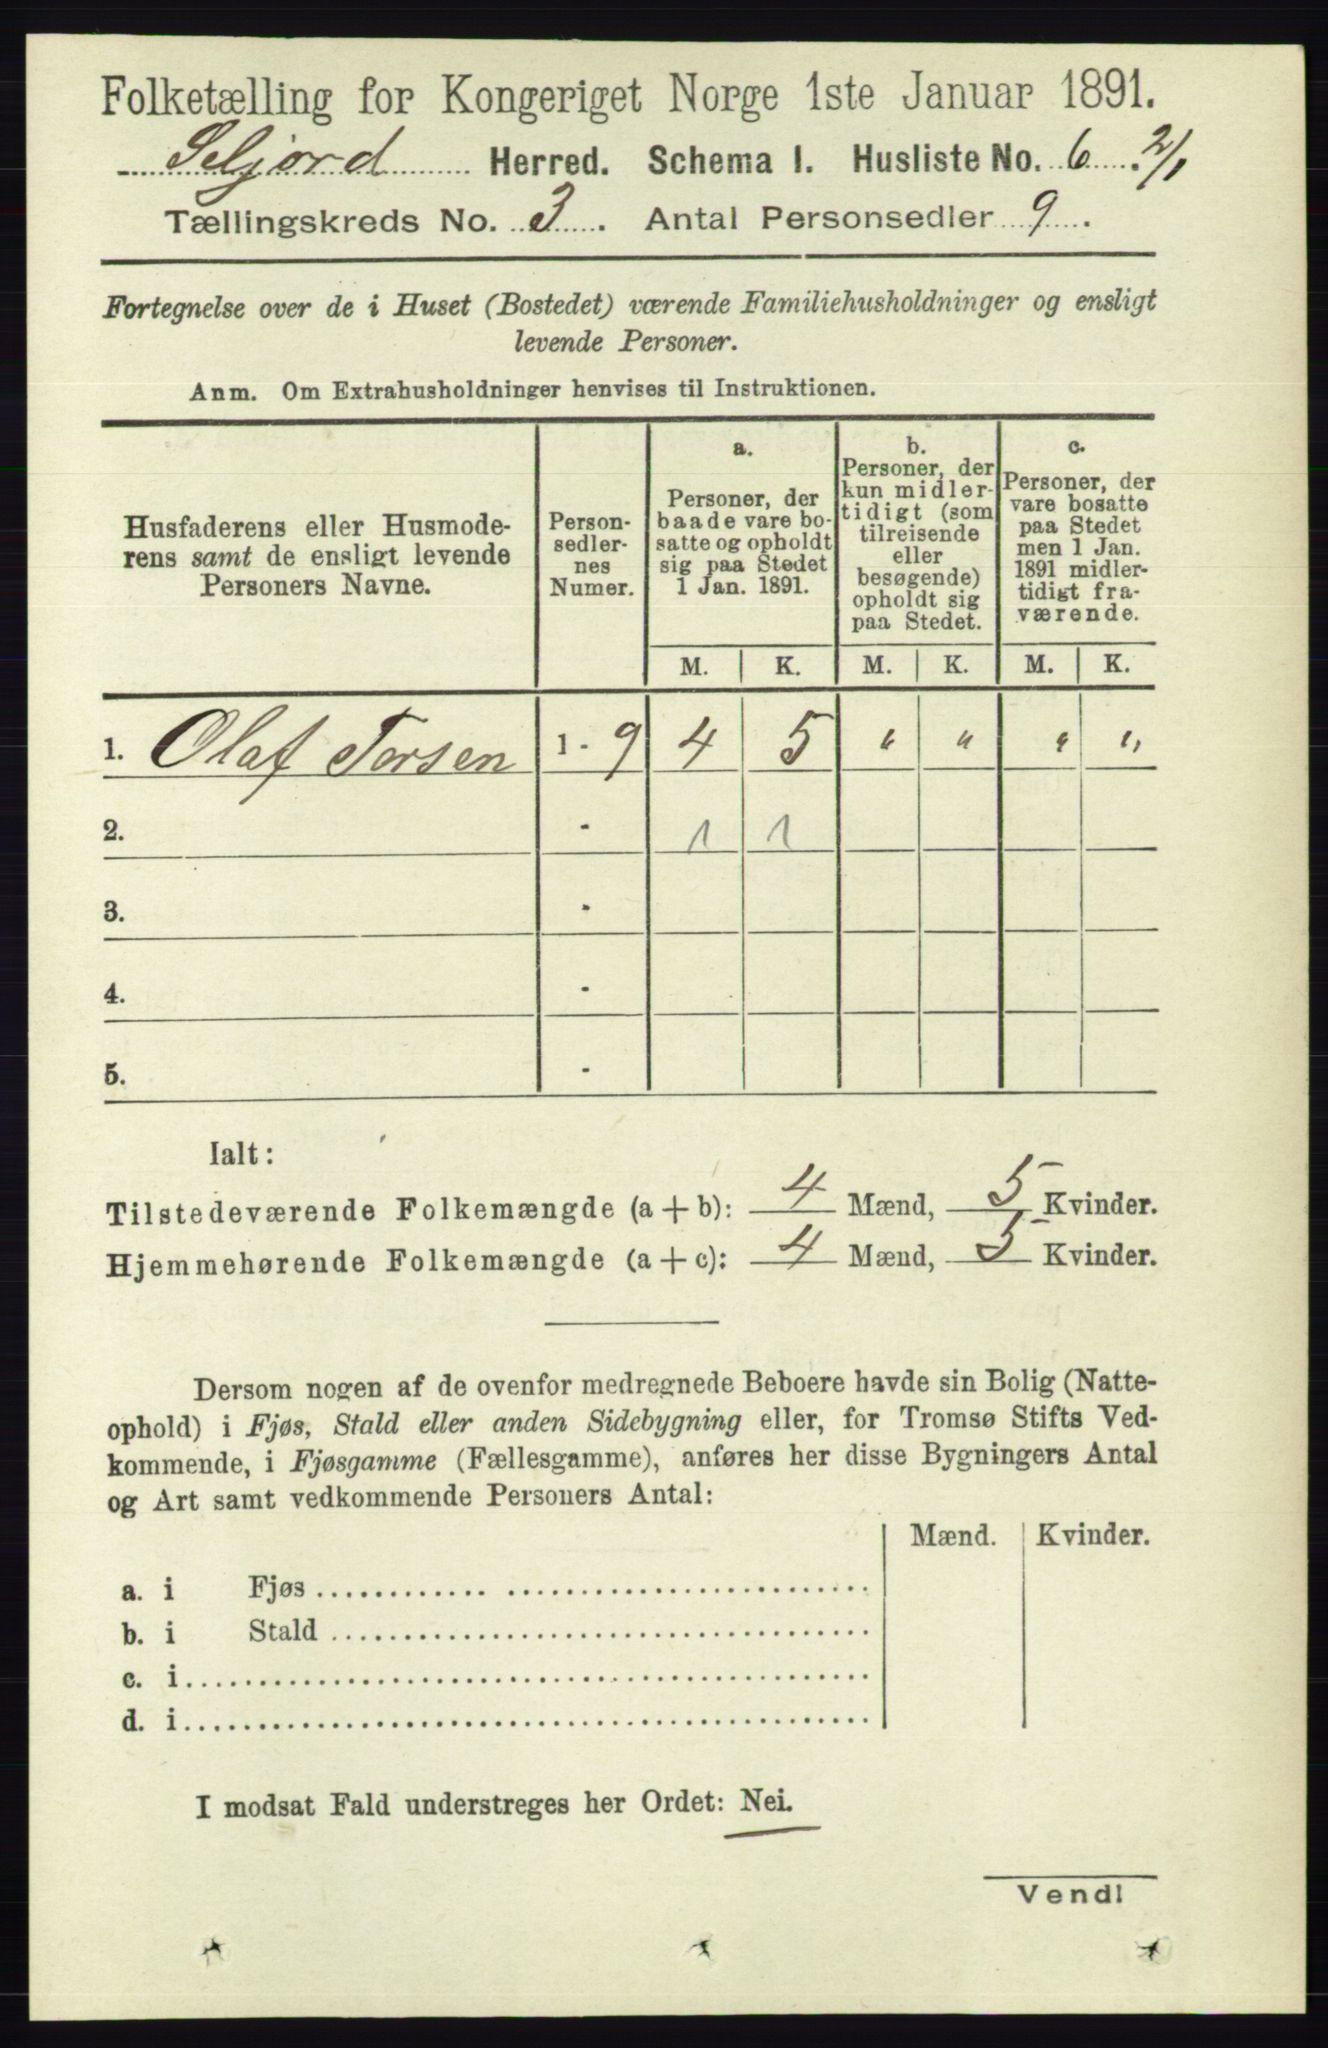 Folketælling for Kongeriget Norge 1ste Januar 1891.
Seljord Herred. Schema I. Husliste No. 6 2/1
Tællingskreds No. 3. Antal Personsedler 9.
Fortegnelse over de i Huset (Bostedet) værende Familiehusholdninger og ensligt
levende Personer.
Anm. Om Extrahusholdninger henvises til Instruktionen.
Husfaderens eller Husmode-
rens samt de ensligt levende
Personers Navne.
Person-
sedler-
nes
Numer.
a.
Personer, der
baade vare bo-
satte og opholdt
sig paa Stedet
1 Jan. 1891.
b.
Personer, der
kun midler-
tidigt (som
tilreisende
eller
besøgende)
opholdt sig
paa Stedet.
c.
Personer, der
vare bosatte
paa Stedet
men 1 Jan.
1891 midler-
tidigt fra-
værende.
M. K. M. K. M. K.
1. Olaf Torsen 1 - 9 4 5 " " " "
2. - 1 1
3. -
4. -
5. -
Ialt:
Tilstedeværende Folkemængde (a + b): 4 Mænd, 5 Kvinder.
Hjemmehørende Folkemængde (a + c): 4 Mænd, 5 Kvinder.
Dersom nogen af de ovenfor medregnede Beboere havde sin Bolig (Natte-
ophold) i Fjøs, Stald eller anden Sidebygning eller, for Tromsø Stifts Ved-
kommende, i Fjøsgamme (Fællesgamme), anføres her disse Bygningers Antal
og Art samt vedkommende Personers Antal:
Mænd. Kvinder.
a. i Fjøs
b. i Stald
c. i
d. i
I modsat Fald understreges her Ordet: Nei.
Vend!